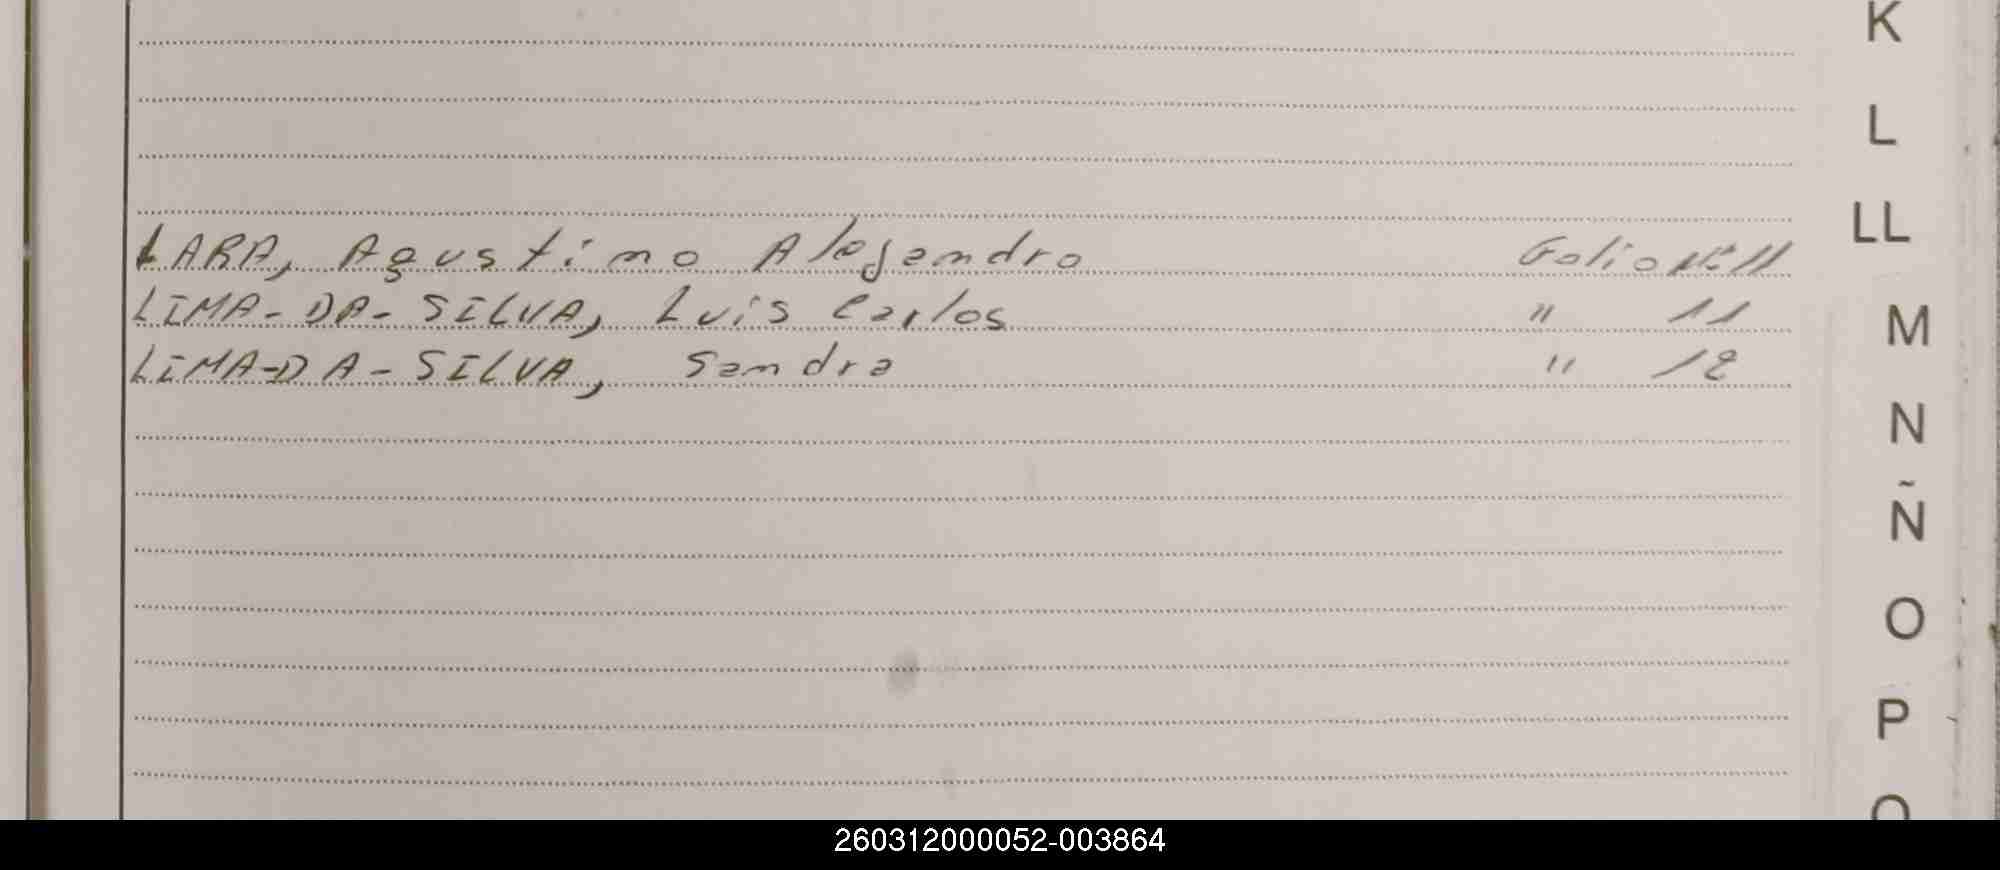 K
L
LL
LARA, Agustino Alejandro Folio Nº 11
LIMA-DA-SILVA, Luis Carlos " 11
LIMA-DA-SILVA, Sandra " 12
M
N
Ñ
O
P
Q
260312000052-003864